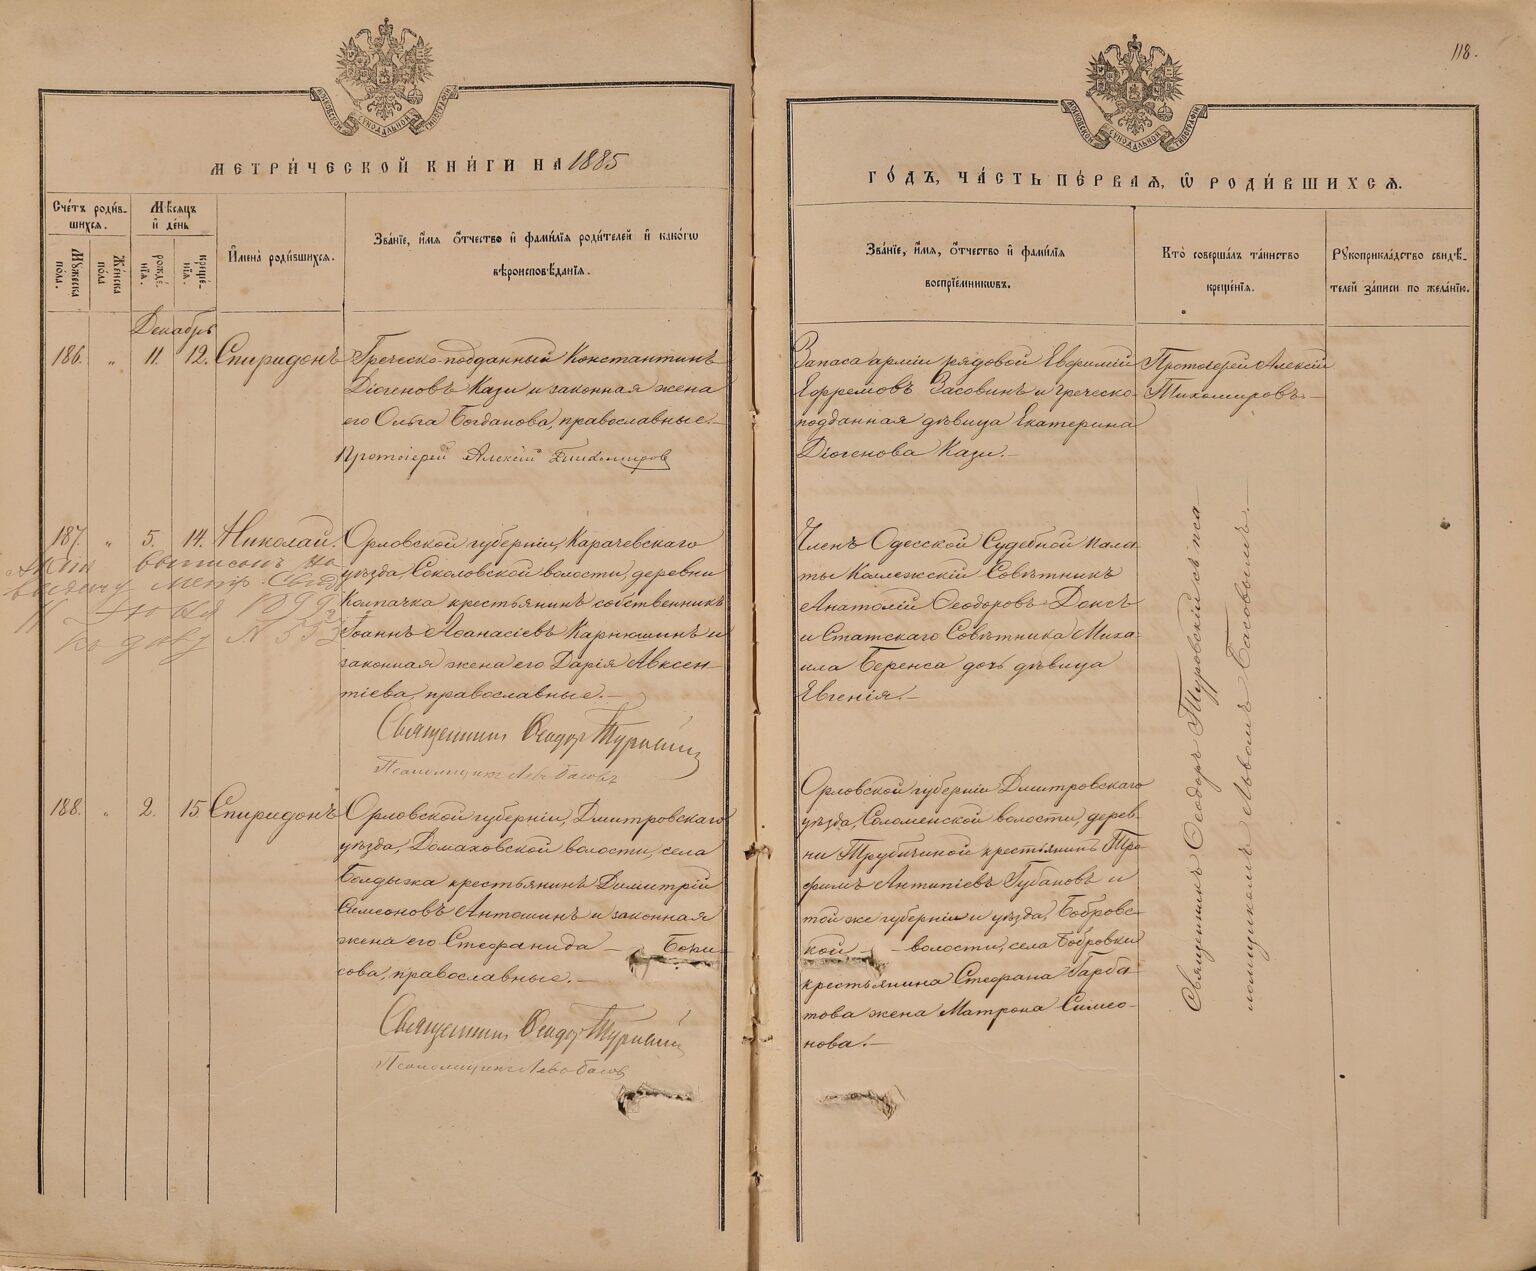 118.
МОСКОВСКОЙ СѴНОДАЛЬНОЙ ТИПОГРАФІИ
МОСКОВСКОЙ СѴНОДАЛЬНОЙ ТИПОГРАФІИ
МЕТРИ́ЧЕСКОЙ КНИ́ГИ НА 1885
ГО́ДЪ, ЧА́СТЬ ПЕ́РВАЯ, Ѡ РОДИ́ВШИХСЯ.
Сче́тъ роди́в-
шихся.
Мꙋ́жеска
по́ла.
Же́нска
по́ла
Мѣ́сяцъ
и҆ де́нь
рожде́-
нїя.
креще́-
нїя.
И҆мена̀ роди́вшихся.
Зва́нїе, и҆́мя ѻ҆́тчество и҆ фами́лїя роди́телей и҆ како́гѡ
вѣроисповѣ́данїя.
Зва́нїе, и҆́мя, ѻ҆́тчество и҆ фами́лїя
воспрїе́мникѡвъ.
Кто̀ соверша́лъ та́инство
креще́нїя.
Рꙋкоприкла́дство свидѣ́-
телей за́писи по жела́нїю.
Декабрь
186. " 11 12. Спиридонъ
Греческо-подданный Константинъ
Діогеновъ Кази и законная жена
его Ольга Богданова, православные.–
Протоіерей Алексій Тихомиров
Запаса арміи рядовой Евфимій
Ефремовъ Засовинъ и греческо-
подданная дѣвица Екатерина
Діогенова Кази.–
Протоіерей Алексій
Тихомировъ.–
187. " 5. 14. Николай.
Орловской губерніи, Карачевскаго
уѣзда, Соколовской волости, деревни
Колпачка крестьянинъ собственникъ
Іоаннъ Аѳанасіевъ Карнюшинъ и
законная жена его Дарія Авксен-
тіева, православные.–
Священник Ѳеодор Туровскій
Псаломщик Левъ Басовъ
выписанъ на
выдачу метр. Свид.
11 1899
№ 553
Членъ Одесской Судебной пала-
ты Коллежскій Совѣтникъ
Анатолій Ѳеодоровъ Доксъ
и Статскаго Совѣтника Миха-
ила Беренса дочь дѣвица
Евгенія.–
Священникъ Ѳеодоръ Туровскій съ пса-
ломщикомъ Львомъ Басовымъ.–
188. " 2. 15 Спиридонъ
Орловской губерніи, Дмитровскаго
уѣзда, Домаховской волости, села
Болдыжа крестьянинъ Димитрій
Симеоновъ Антошинъ и законная
жена его Стефанида – Бори-
сова, православные.–
Священник Ѳеодор Туровскій
Псаломщик Левъ Басов
Орловской губерніи Дмитровскаго
уѣзда, Соломенской волости, дерев-
ни Трубичиной крестьянинъ Тро-
фимъ Антипіевъ Губановъ и
той же губерніи и уѣзда, Бобровс-
кой – волости, села Бобровки
крестьянина Стефана Гарба-
това жена Матрона Симео-
нова.–